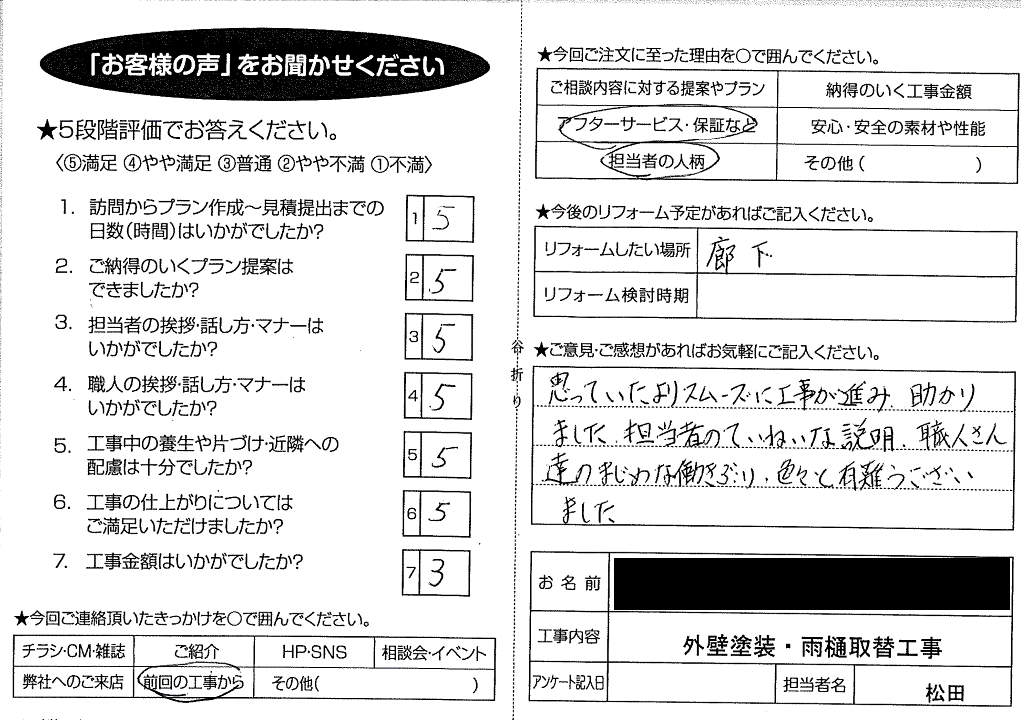 「お客様の声」をお聞かせください
★5段階評価でお答えください。
〈⑤満足 ④やや満足 ③普通 ②やや不満 ①不満〉
1. 訪問からプラン作成～見積提出までの
日数(時間)はいかがでしたか?
1 5
2. ご納得のいくプラン提案は
できましたか?
2 5
3. 担当者の挨拶・話し方・マナーは
いかがでしたか?
3 5
4. 職人の挨拶・話し方・マナーは
いかがでしたか?
4 5
5. 工事中の養生や片づけ・近隣への
配慮は十分でしたか?
5 5
6. 工事の仕上がりについては
ご満足いただけましたか?
6 5
7. 工事金額はいかがでしたか?
7 3
★今回ご連絡頂いたきっかけを○で囲んでください。
チラシ・CM・雑誌 ご紹介 HP・SNS 相談会・イベント
弊社へのご来店 前回の工事から その他( )
谷折り
★今回ご注文に至った理由を○で囲んでください。
ご相談内容に対する提案やプラン 納得のいく工事金額
アフターサービス・保証など 安心・安全の素材や性能
担当者の人柄 その他( )
★今後のリフォーム予定があればご記入ください。
リフォームしたい場所 廊下
リフォーム検討時期
★ご意見・ご感想があればお気軽にご記入ください。
思っていたよりスムーズに工事が進み、助かり
ました。担当者のていねいな説明、職人さん
達のまじめな働きぶり、色々と有難うござい
ました
お名前
工事内容 外壁塗装・雨樋取替工事
アンケート記入日 担当者名 松田